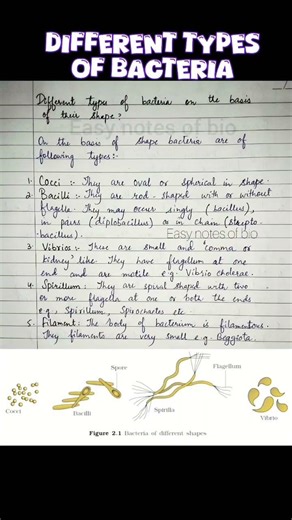 DIFFERENT TYPES
OF BACTERIA
Different types of bacteria on the basis
of their shape?
Easy notes of bio
On the basis of shape bacteria are of
following types:-
1. Cocci :- They are oval or spherical in shape.
2. Bacilli :- They are rod-shaped with or without
flagella. They may occur singly (bacillus),
in pairs (diplobacillus) or in chain (strepto-
bacillus).
Easy notes of bio
3. Vibrios :- These are small and "comma or
kidney" like. They have flagellum at one
end and are motile e.g. Vibrio cholerae.
4. Spirillum :- They are spiral shaped with two
or more flagella at one or both the ends
e.g., Spirillum, Spirochaetes etc
5. Filament: The body of bacterium is filamentous.
They filaments are very small e.g. Beggiota.
Spore
Flagellum
Cocci
Bacilli
Spirilla
Vibrio
Figure 2.1 Bacteria of different shapes